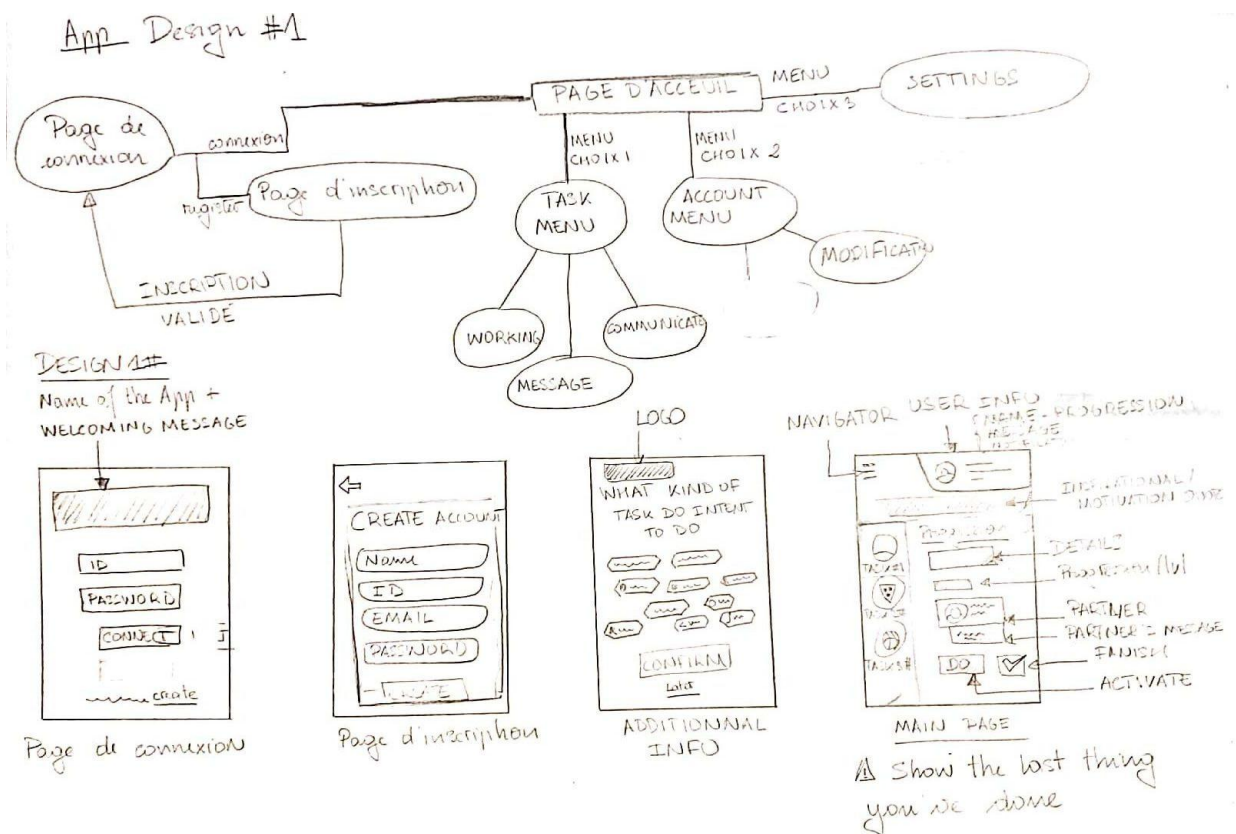 App Design #1
Page de
connexion
connexion
register
Page d'inscription
INSCRIPTION
VALIDÉ
PAGE D'ACCEUIL
MENU
CHOIX 3
SETTINGS
MENU
CHOIX 1
MENU
CHOIX 2
TASK
MENU
ACCOUNT
MENU
MODIFICATION
WORKING
MESSAGE
COMMUNICATE
DESIGN 1#
Name of the App +
WELCOMING MESSAGE
ID
PASSWORD
CONNECT
create
Page de connexion
CREATE ACCOUNT
Name
ID
EMAIL
PASSWORD
CREATE
Page d'inscription
LOGO
WHAT KIND OF
TASK DO INTENT
TO DO
CONFIRM
Later
ADDITIONNAL
INFO
NAVIGATOR
USER INFO
NAME - PROGRESSION
MESSAGE
INSPIRATIONAL/
MOTIVATION QUOTE
TASK#1
TASK3#
DETAILS
PROGRESSION/lvl
PARTNER
PARTNER'S MESSAGE
FINNISH
DO
ACTIVATE
MAIN PAGE
⚠ Show the last thing
you've done